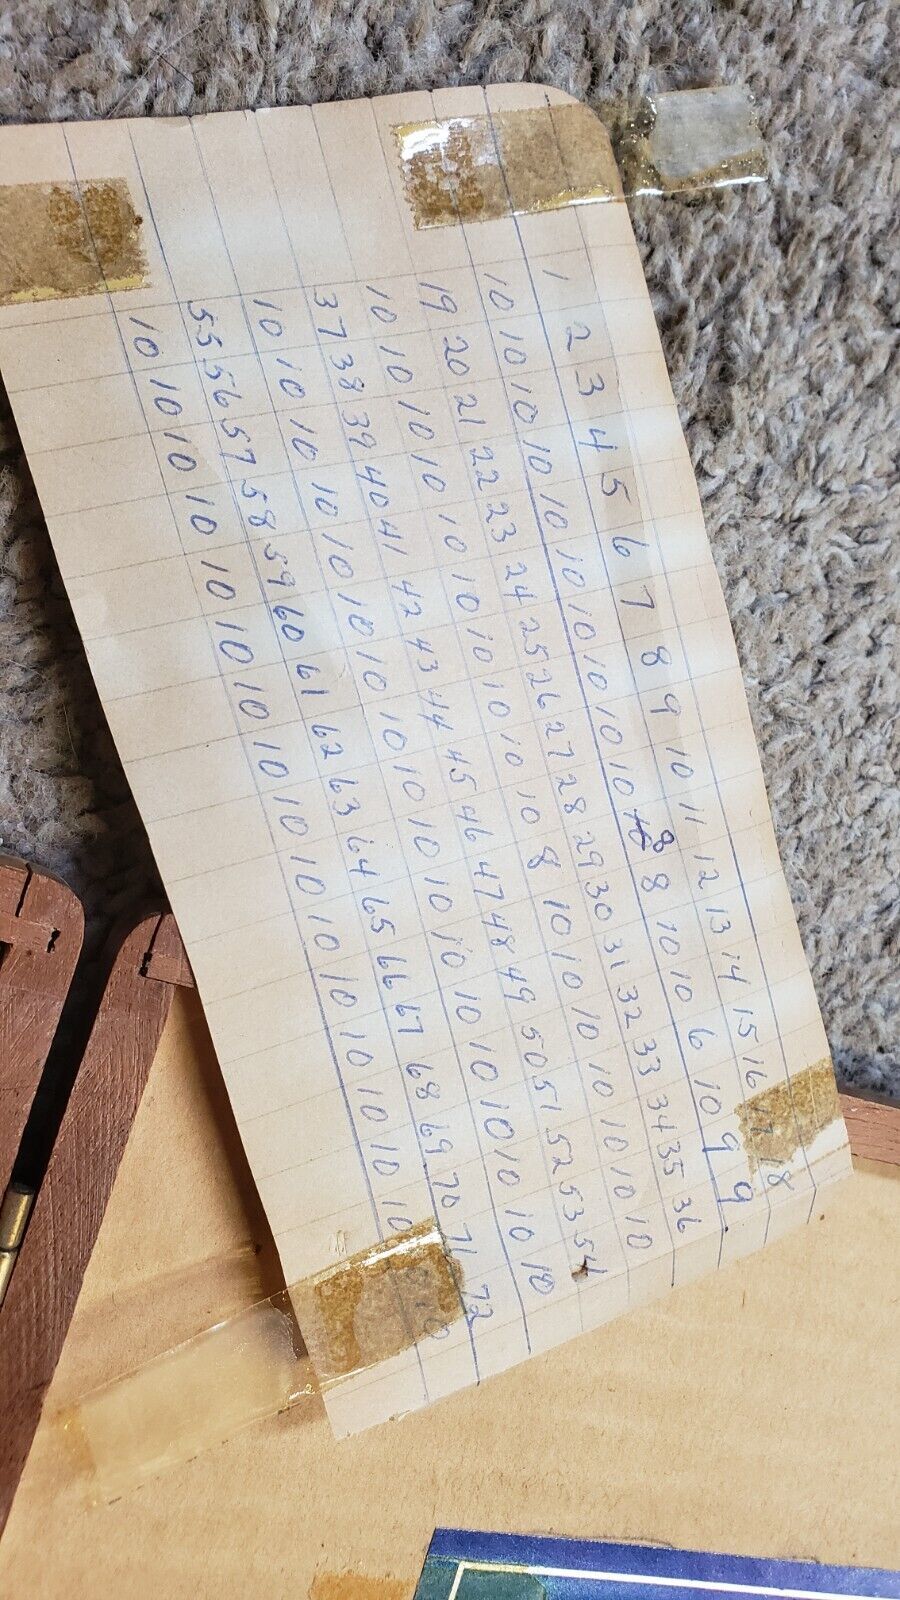 1 2 3 4 5 6 7 8 9 10 11 12 13 14 15 16 17 18
10 10 10 10 10 10 10 10 10 10 8 8 10 10 6 10 9 9
19 20 21 22 23 24 25 26 27 28 29 30 31 32 33 34 35 36
10 10 10 10 10 10 10 10 10 10 8 10 10 10 10 10 10 10
37 38 39 40 41 42 43 44 45 46 47 48 49 50 51 52 53 54
10 10 10 10 10 10 10 10 10 10 10 10 10 10 10 10 10 10
55 56 57 58 59 60 61 62 63 64 65 66 67 68 69 70 71 72
10 10 10 10 10 10 10 10 10 10 10 10 10 10 10 10 10 10